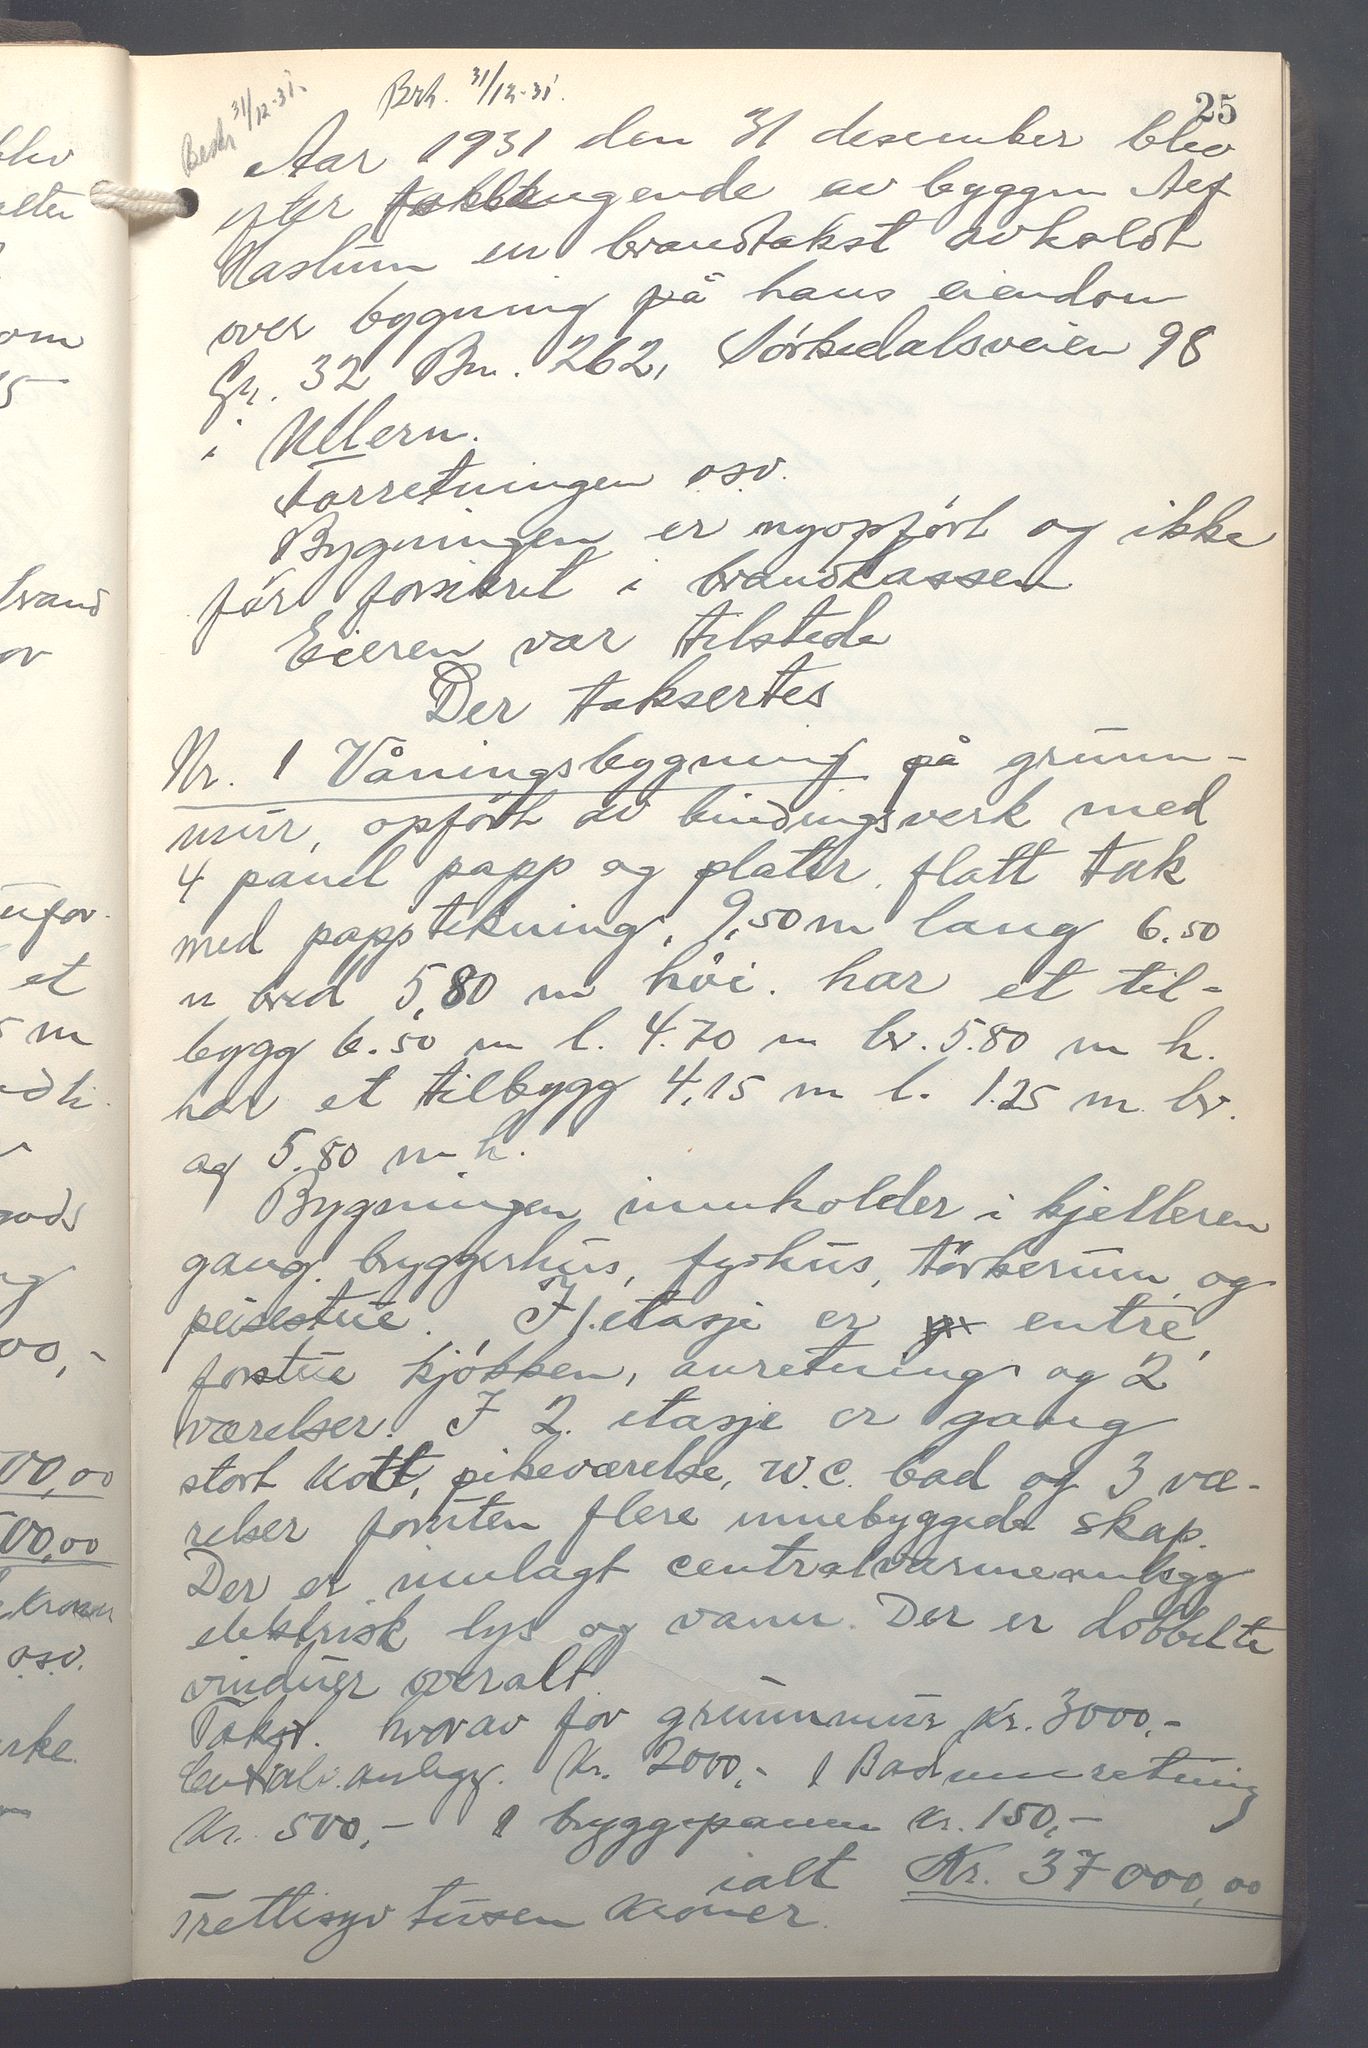 Beskr 31/12-31.
Brh. 31/12-31.
25
Aar 1931 den 31 desember blev
efter forlangende av byggm
Hastum en brandtakst avholdt
over bygning på hans eiendom
Gr. 32 Bn. 262, Sørkedalsveien 98
i Ullern.
Forretningen osv.
Bygningen er nyopført og ikke
før forsikret i brandkassen
Eieren var tilstede
Der taksertes
Nr. 1 Våningsbygning på grunn-
mur, opført av bindingsverk med
4 panel papp og plater. flatt tak
med papptekning, 9,50 m lang 6.50
m bred 5,80 m høi. har et til-
bygg 6.50 m l. 4.70 m br. 5.80 m h.
har et tilbygg 4,15 m l. 1.25 m br.
og 5.80 m h.
Bygningen innholder i kjelleren
gang, bryggerhus, fyrhus, tørkerum og
peisestue. I 1. etasje er entre,
forstue kjøkken, anretning og 2
værelser. I 2. etasje er gang
stort kott, pikeværelse, W.C. bad og 3 væ-
relser foruten flere innebyggede skap.
Der er innlagt centralvarmeanlegg
elektrisk lys og vann. Der er dobbelte
vinduer overalt.
Takst. hvorav for grunnmur Kr. 3000,-
Centralv. anlegg. Kr. 2000,- 1 Badinnretning
Kr. 500,- 1 bryggepanne Kr. 150,-
ialt Kr. 37000,00
Trettisyv tusen Kroner.
blev
om
15
brand
ov
et
5 m
ng
00,-
00,00
00,00
kroner
osv.